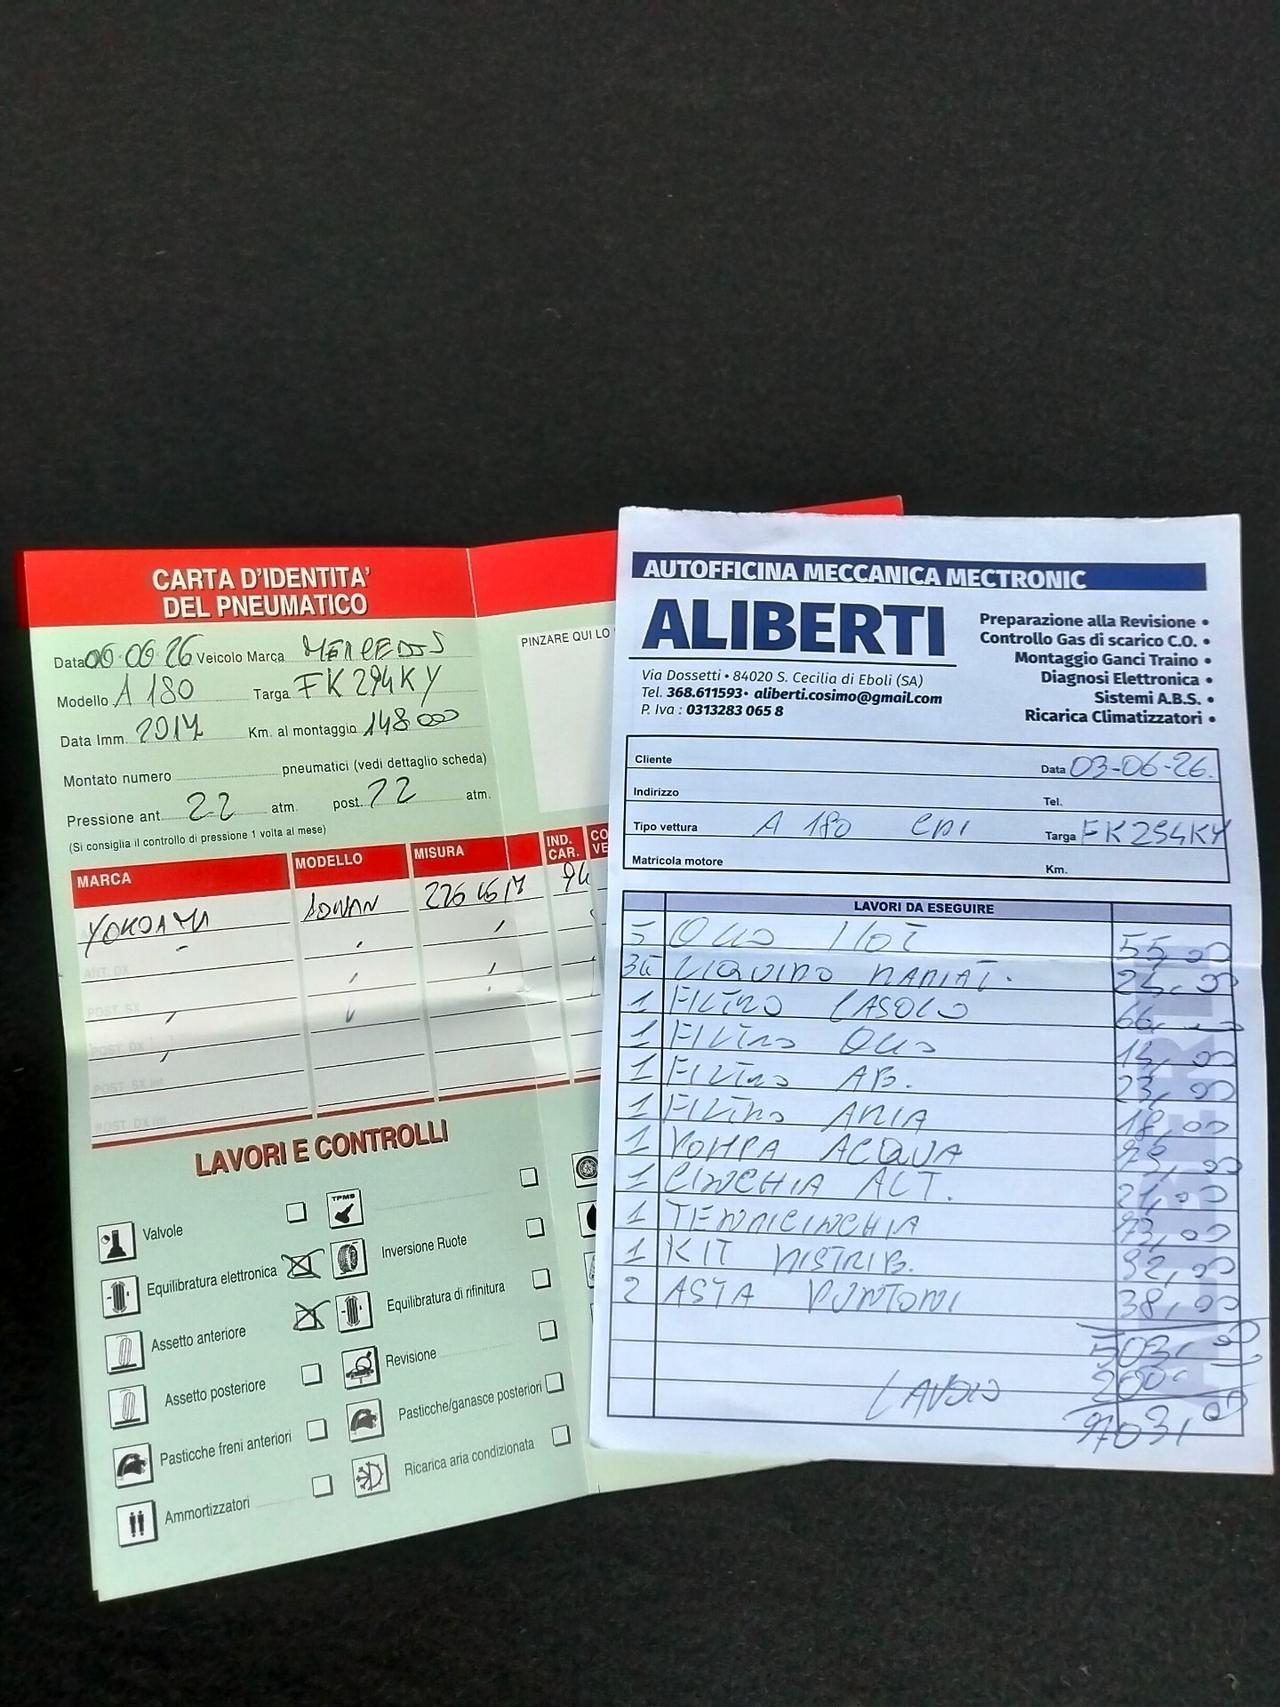 CARTA D'IDENTITA'
DEL PNEUMATICO
Data 06·06 26 Veicolo Marca MERCEDES
Modello A 180 Targa FK294KY
Data Imm. 2017 Km. al montaggio 148000
Montato numero pneumatici (vedi dettaglio scheda)
Pressione ant. 2.2 atm. post. 22 atm.
(Si consiglia il controllo di pressione 1 volta al mese)
PINZARE QUI LO
MARCA MODELLO MISURA IND. CAR.
YOKOAMA 94
ANT. DX
POST. SX
POST. DX
POST. SX int.
POST. DX int.
LAVORI E CONTROLLI
Valvole
TPMS
Equilibratura elettronica
Inversione Ruote
Assetto anteriore
Equilibratura di rifinitura
Assetto posteriore
Revisione
Pasticche freni anteriori
Pasticche/ganasce posteriori
Ammortizzatori
Ricarica aria condizionata
AUTOFFICINA MECCANICA MECTRONIC
ALIBERTI
Via Dossetti • 84020 S. Cecilia di Eboli (SA)
Tel. 368.611593• aliberti.cosimo@gmail.com
P. Iva : 0313283 065 8
Preparazione alla Revisione •
Controllo Gas di scarico C.O. •
Montaggio Ganci Traino •
Diagnosi Elettronica •
Sistemi A.B.S. •
Ricarica Climatizzatori •
Cliente Data 03-06-26.
Indirizzo Tel.
Tipo vettura A 180 CDI Targa FK294KY
Matricola motore Km.
LAVORI DA ESEGUIRE
5 OLIO 55,00
LIQUIDO RADIAT.
1 FILTRO GASOLO 66,00
1 FILTRO OLIO
1 FILTRO AB. 23,00
1 FILTRO ARIA 18,00
1 POMPA ACQUA
1 CINGHIA ALT. 21,00
1 TENDICINGHIA
1 KIT DISTRIB. 92,00
2 ASTA PUNTONI 38,00
503,00
LAVORO 200
703,00
ALIBERTI